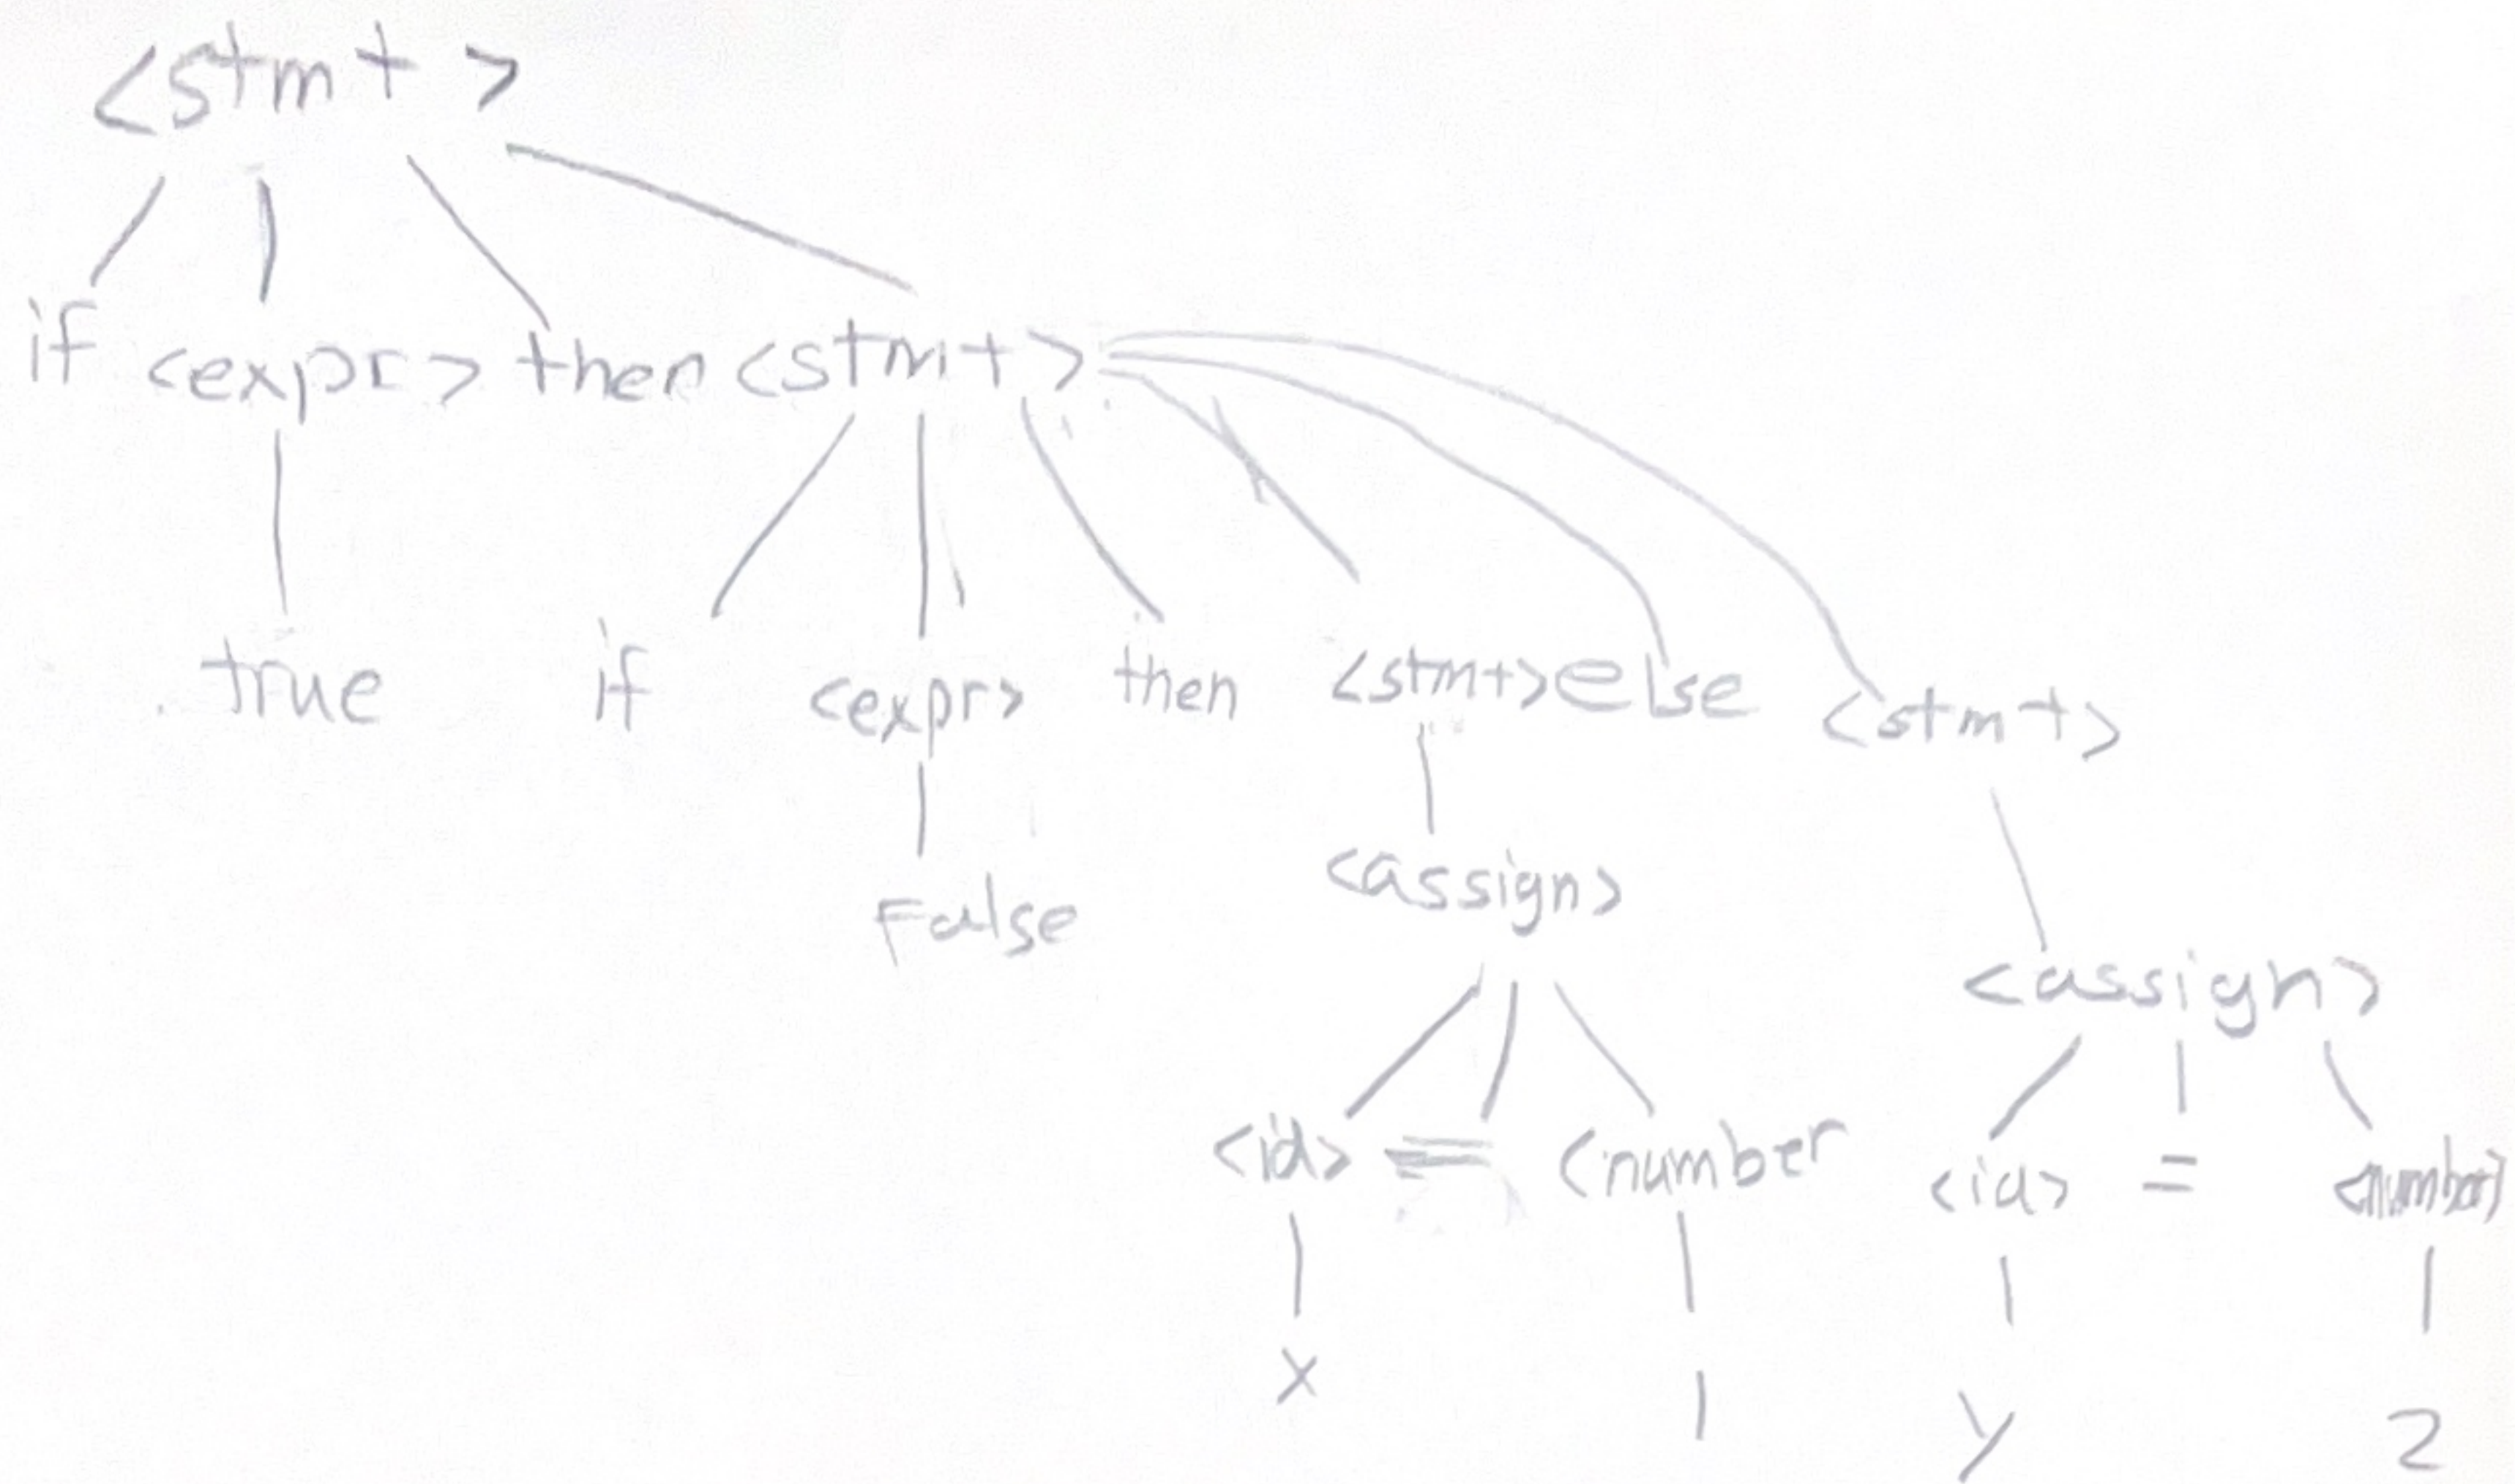 <stmt>
if <expr> then <stmt>
true if <expr> then <stmt> else <stmt>
False <assign>
<assign>
<id> = <number <id> = <number>
x 1 y 2